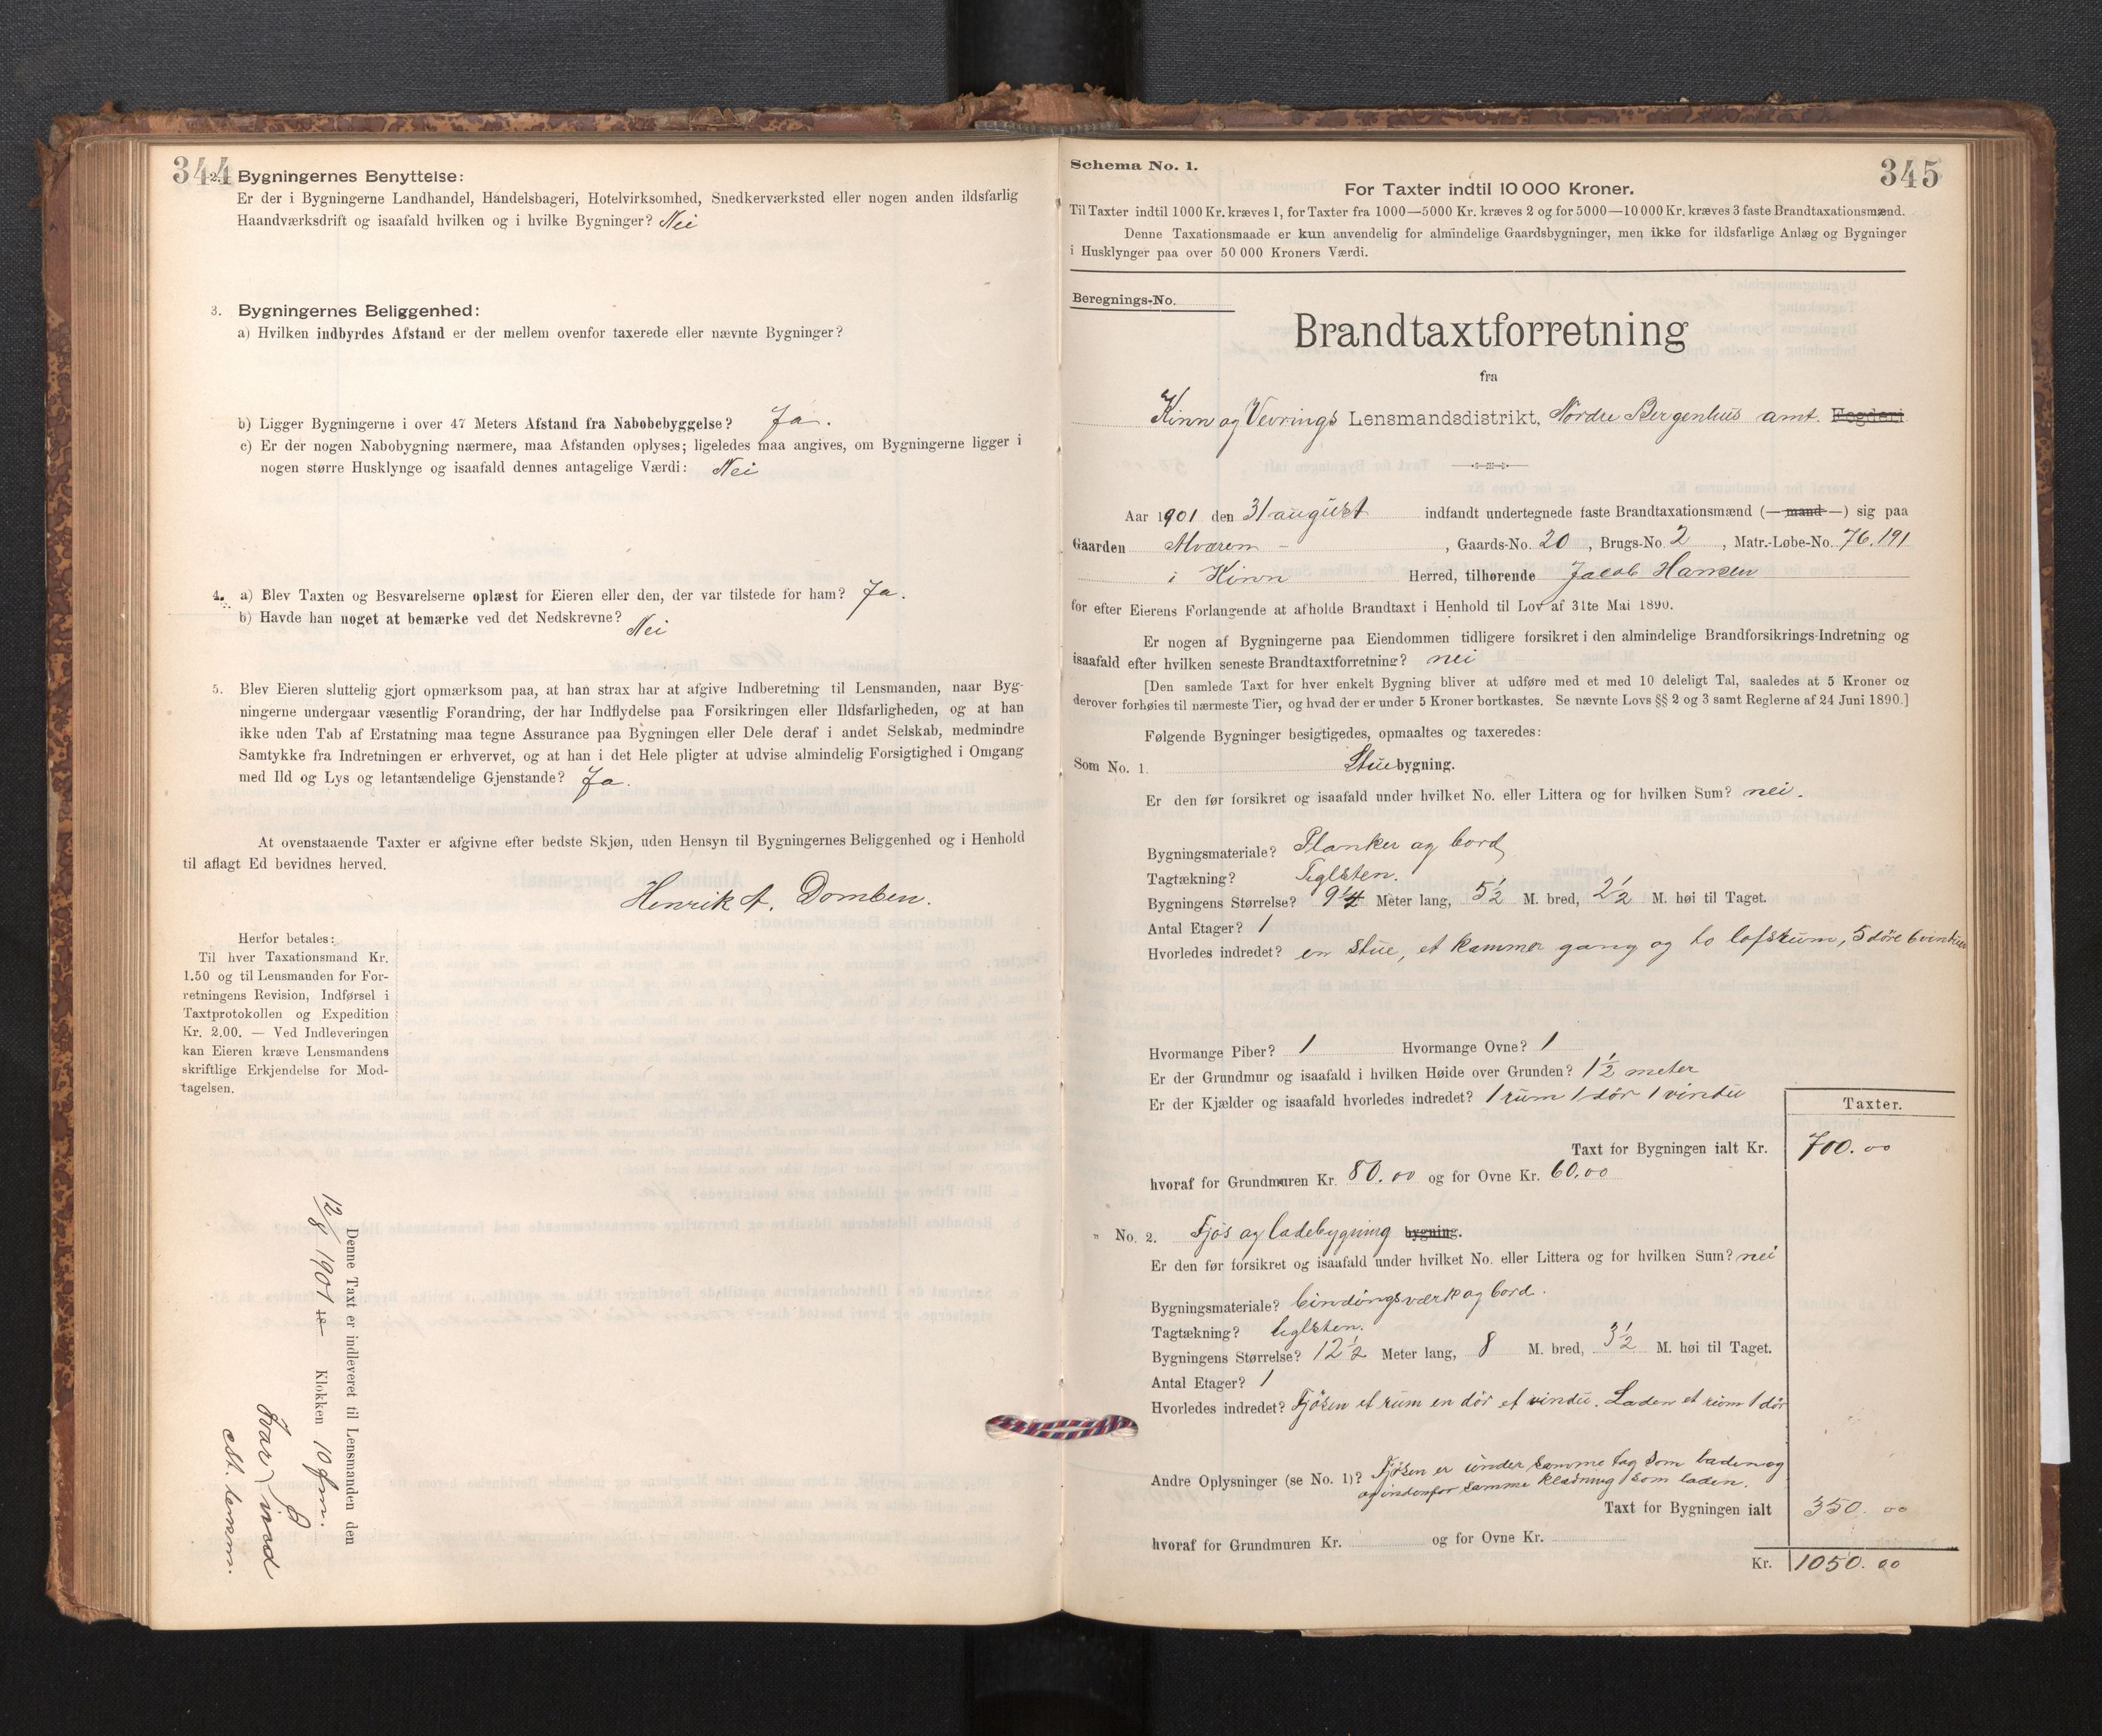 344
2. Bygningernes Benyttelse:
Er der i Bygningerne Landhandel, Handelsbageri, Hotelvirksomhed, Snedkerværksted eller nogen anden ildsfarlig
Haandværksdrift og isaafald hvilken og i hvilke Bygninger? Nei
3. Bygningernes Beliggenhed:
a) Hvilken indbyrdes Afstand er der mellem ovenfor taxerede eller nævnte Bygninger?
b) Ligger Bygningerne i over 47 Meters Afstand fra Nabobebyggelse? Ja.
c) Er der nogen Nabobygning nærmere, maa Afstanden oplyses; ligeledes maa angives, om Bygningerne ligger i
nogen større Husklynge og isaafald dennes antagelige Værdi: Nei
4. a) Blev Taxten og Besvarelserne oplæst for Eieren eller den, der var tilstede for ham? Ja.
b) Havde han noget at bemærke ved det Nedskrevne? Nei
5. Blev Eieren sluttelig gjort opmærksom paa, at han strax har at afgive Indberetning til Lensmanden, naar Byg-
ningerne undergaar væsentlig Forandring, der har Indflydelse paa Forsikringen eller Ildsfarligheden, og at han
ikke uden Tab af Erstatning maa tegne Assurance paa Bygningen eller Dele deraf i andet Selskab, medmindre
Samtykke fra Indretningen er erhvervet, og at han i det Hele pligter at udvise almindelig Forsigtighed i Omgang
med Ild og Lys og letantændelige Gjenstande? Ja.
At ovenstaaende Taxter er afgivne efter bedste Skjøn, uden Hensyn til Bygningernes Beliggenhed og i Henhold
til aflagt Ed bevidnes herved.
Henrik A. Domben.
Herfor betales:
Til hver Taxationsmand Kr.
1.50 og til Lensmanden for For-
retningens Revision, Indførsel i
Taxtprotokollen og Expedition
Kr. 2.00. — Ved Indleveringen
kan Eieren kræve Lensmandens
skriftlige Erkjendelse for Mod-
tagelsen.
Denne Taxt er indleveret til Lensmanden den
12/8 1901 18 Klokken 10 fm.
st. lensm.
345
Schema No. 1.
For Taxter indtil 10 000 Kroner.
Til Taxter indtil 1000 Kr. kræves 1, for Taxter fra 1000—5000 Kr. kræves 2 og for 5000—10 000 Kr. kræves 3 faste Brandtaxationsmænd.
Denne Taxationsmaade er kun anvendelig for almindelige Gaardsbygninger, men ikke for ildsfarlige Anlæg og Bygninger
i Husklynger paa over 50 000 Kroners Værdi.
Beregnings-No.
Brandtaxtforretning
fra
Kinn og Vevrings Lensmandsdistrikt, Nordre Bergenhus amt. Fogderi
Aar 1901 den 31 august indfandt undertegnede faste Brandtaxationsmænd (— mand —) sig paa
Gaarden Alværen - , Gaards-No. 20, Brugs-No. 2, Matr.-Løbe-No. 76.191
i Kinn Herred, tilhørende Jacob Hansen
for efter Eierens Forlangende at afholde Brandtaxt i Henhold til Lov af 31te Mai 1890.
Er nogen af Bygningerne paa Eiendommen tidligere forsikret i den almindelige Brandforsikrings-Indretning og
isaafald efter hvilken seneste Brandtaxtforretning? nei
[Den samlede Taxt for hver enkelt Bygning bliver at udføre med et med 10 deleligt Tal, saaledes at 5 Kroner og
derover forhøies til nærmeste Tier, og hvad der er under 5 Kroner bortkastes. Se nævnte Lovs §§ 2 og 3 samt Reglerne af 24 Juni 1890.]
Følgende Bygninger besigtigedes, opmaaltes og taxeredes:
Som No. 1. Stuebygning.
Er den før forsikret og isaafald under hvilket No. eller Littera og for hvilken Sum? nei.
Bygningsmateriale? Planker og bord
Tagtækning? Teglsten.
Bygningens Størrelse? 9 1/4 Meter lang, 5 1/2 M. bred, 2 1/2 M. høi til Taget.
Antal Etager? 1
Hvorledes indredet? en stue, et kammer gang og to lofsrum, 5 døre 6 vinduer
Hvormange Piber? 1 Hvormange Ovne? 1
Er der Grundmur og isaafald i hvilken Høide over Grunden? 1 1/2 meter
Er der Kjælder og isaafald hvorledes indredet? 1 rum 1 dør 1 vindu
Taxter.
Taxt for Bygningen ialt Kr. 700.00
hvoraf for Grundmuren Kr. 80.00 og for Ovne Kr. 60.00
" No. 2. Fjøs og ladebygning bygning.
Er den før forsikret og isaafald under hvilket No. eller Littera og for hvilken Sum? nei
Bygningsmateriale? bindingsværk og bord.
Tagtækning? teglsten.
Bygningens Størrelse? 12 1/2 Meter lang, 8 M. bred, 3 1/2 M. høi til Taget.
Antal Etager? 1
Hvorledes indredet? Fjøsen et rum en dør et vindu. Laden et rum 1 dør
Andre Oplysninger (se No. 1)? Fjøsen er under samme tag som laden og
og indenfor samme klædning som laden.
Taxt for Bygningen ialt 350.00
hvoraf for Grundmuren Kr. og for Ovne Kr.
Kr. 1050.00